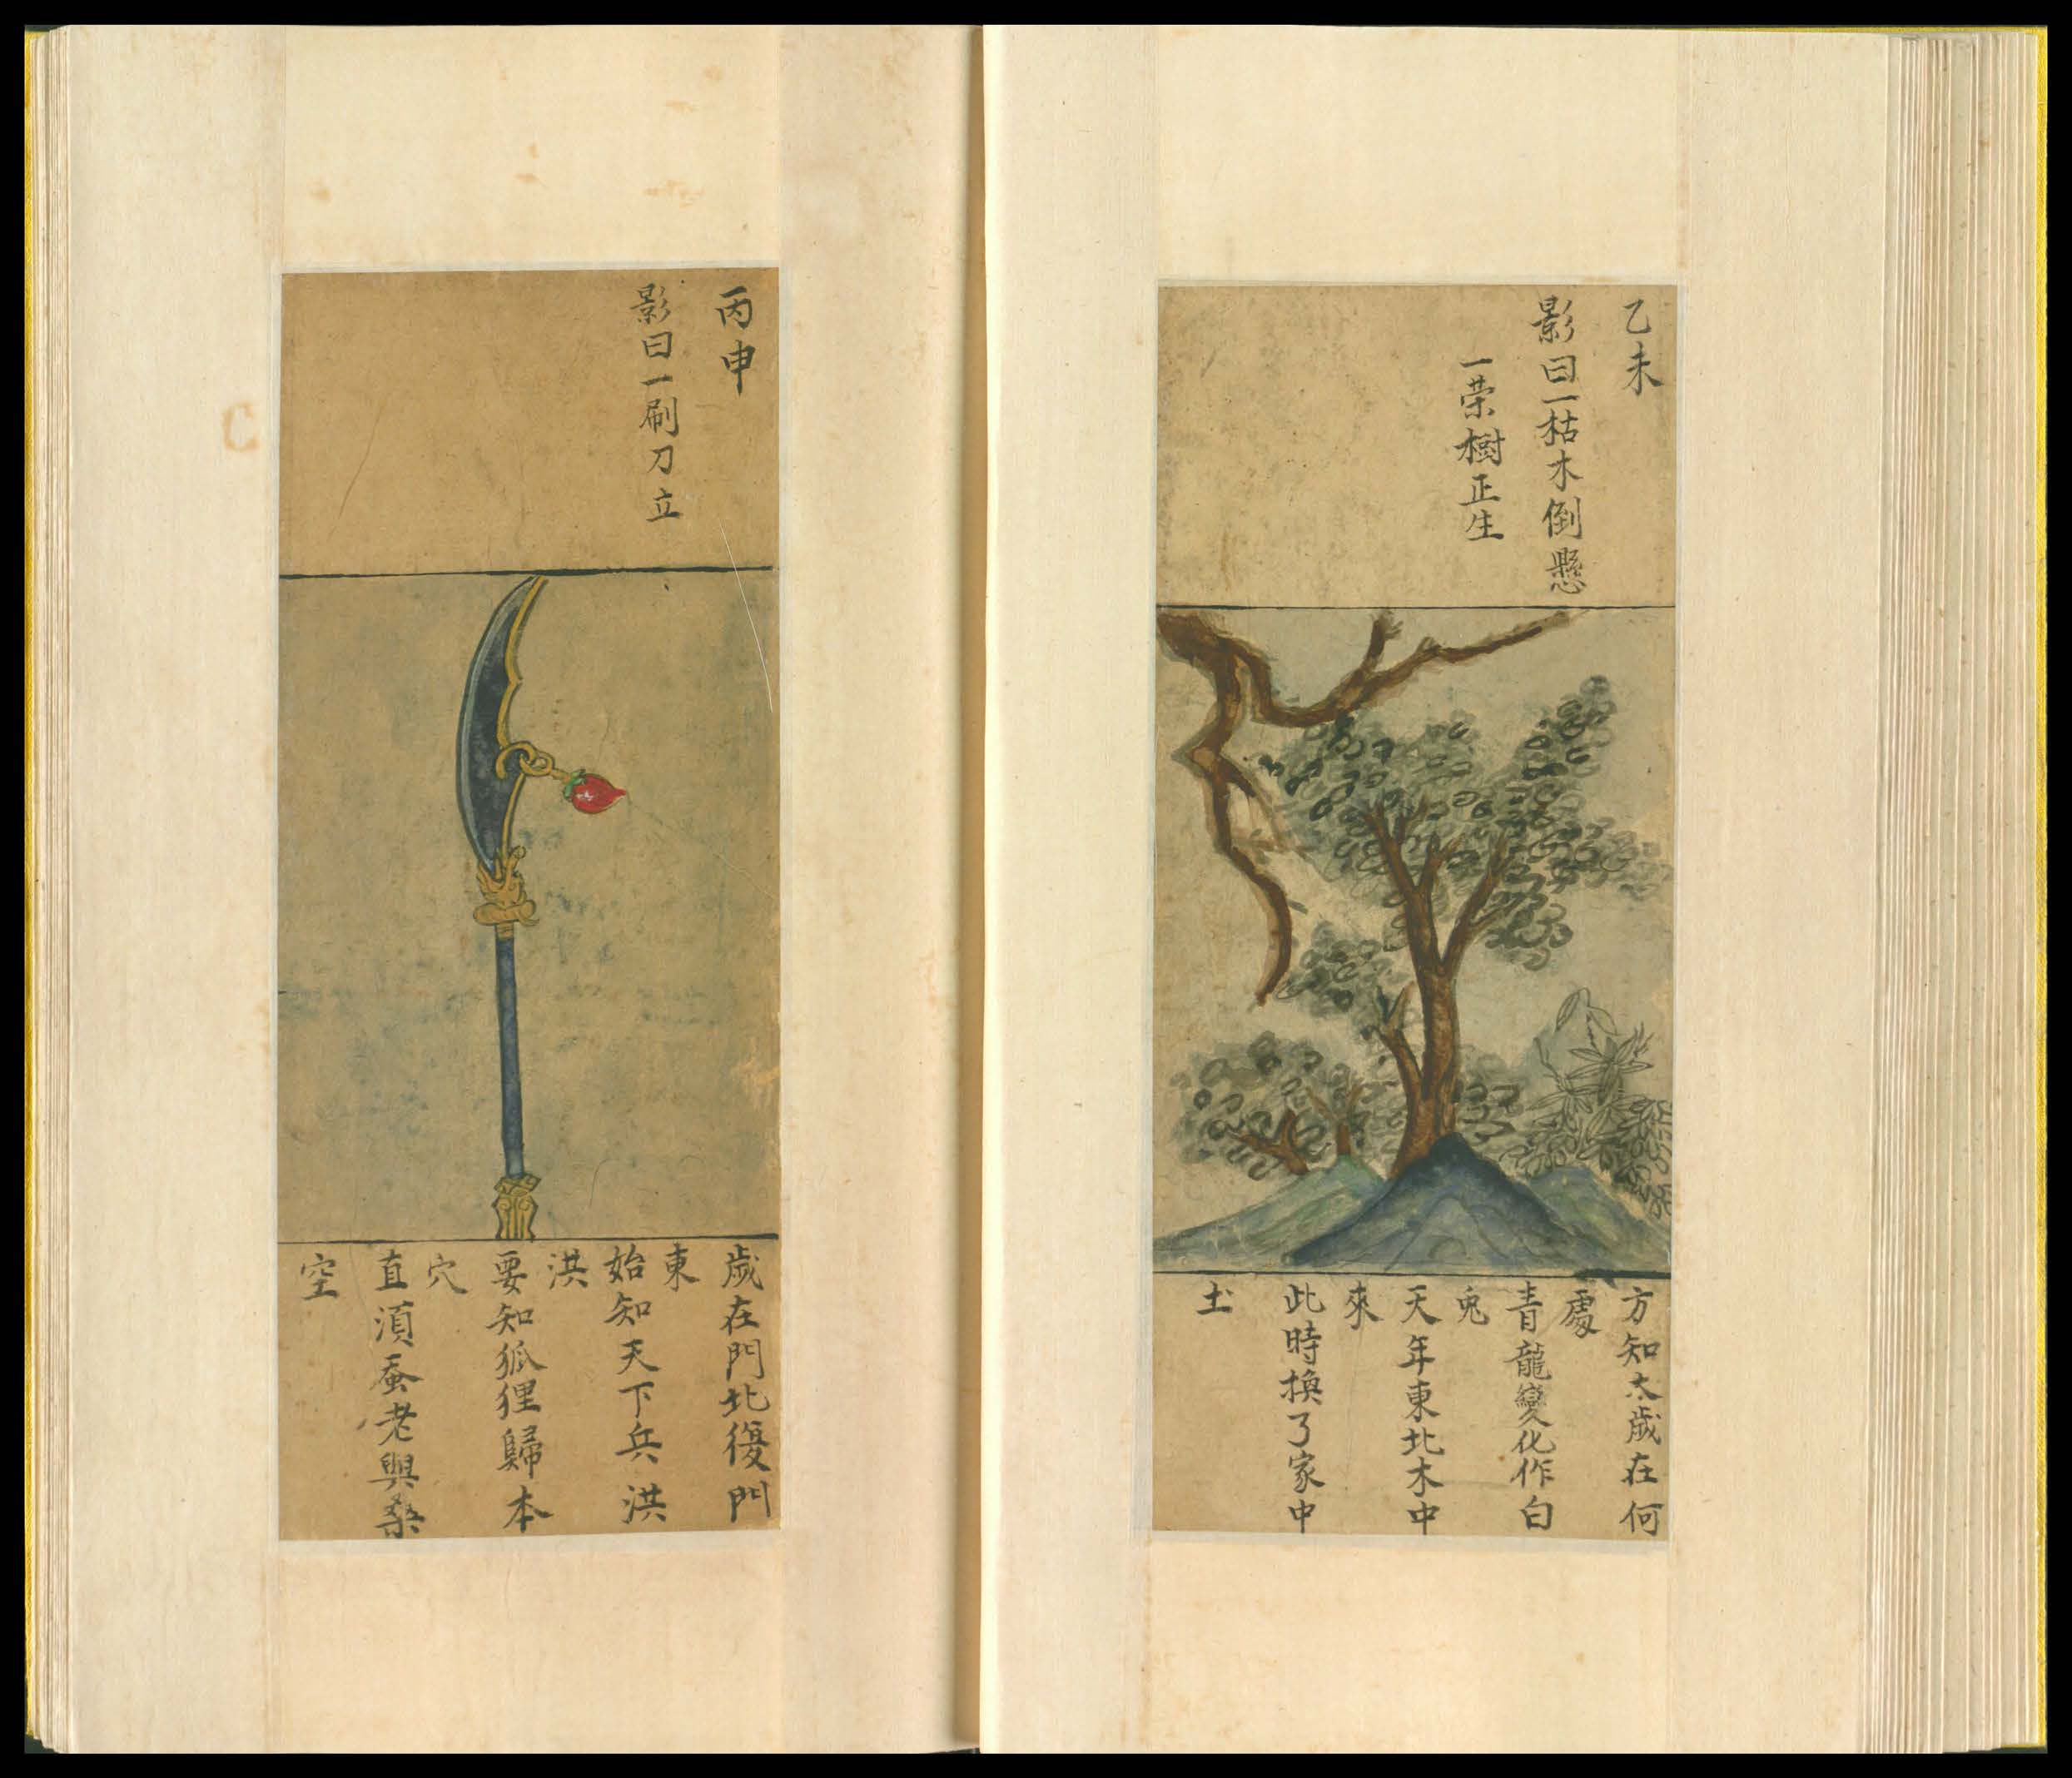 乙未
影曰一枯木倒懸
一荣樹正生
方知太歲在何
處
青龍變化作白
兎
天年東北木中
來
此時換了家中
土
丙申
影曰一刷刀立
歲在門北復門
東
始知天下兵洪
洪
要知狐狸歸本
穴
直湏蚕老與桑
空